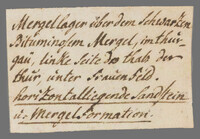 Mergellager über dem Schwarzen
Bituminosem Mergel, im thur-
gau, linke Seite des thals der
thur, unter Frauenfeld.
horizontalliegende Sandstein
u: Mergel Formation.